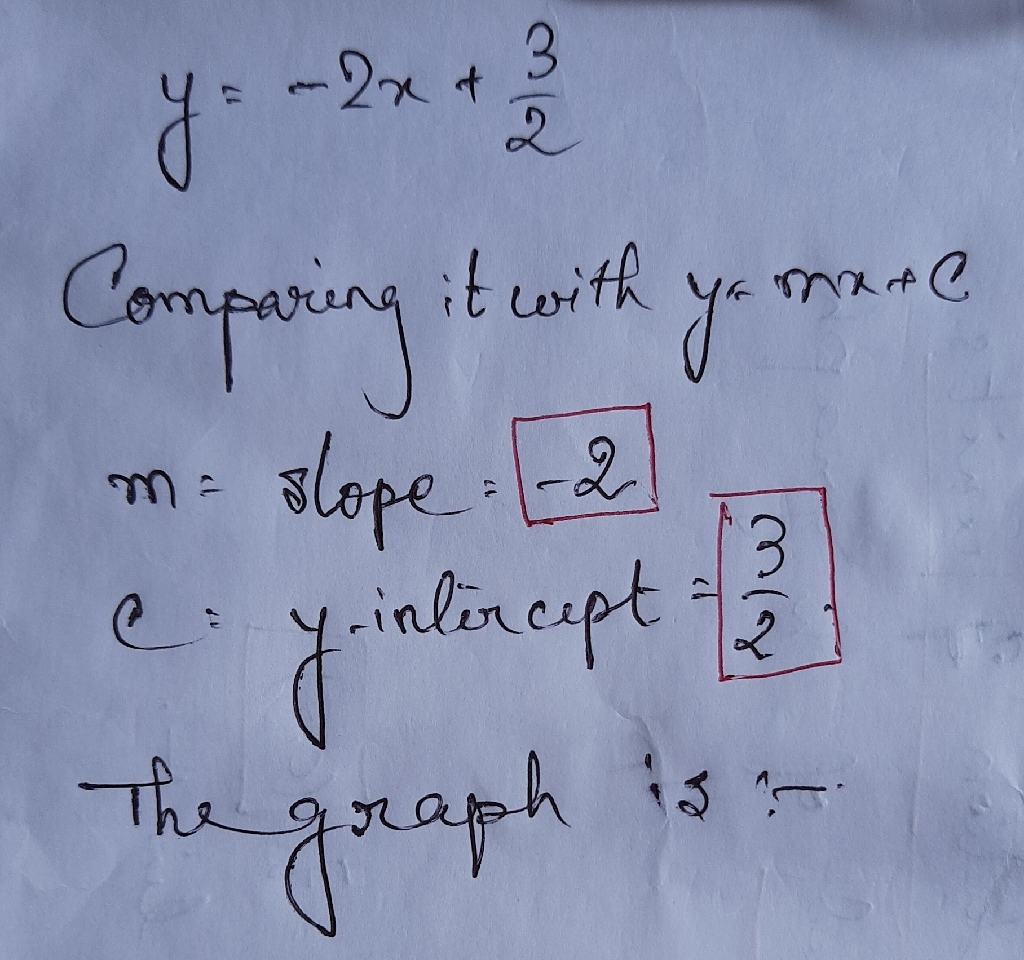 y = -2x + 3/2
Comparing it with y = mx + c
m = slope = -2
c = y-intercept = 3/2
The graph is :-